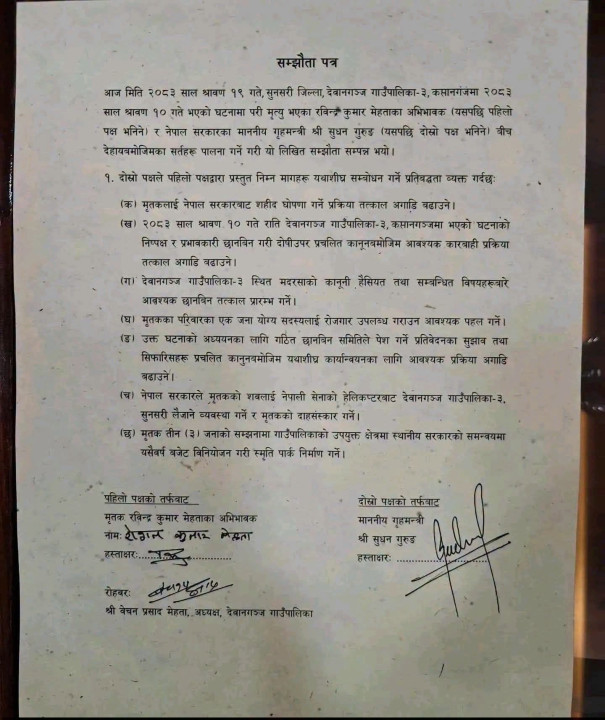 सम्झौता पत्र
आज मिति २०८३ साल श्रावण १९ गते, सुनसरी जिल्ला, देवानगञ्ज गाउँपालिका-३, कप्तानगंजमा २०८३
साल श्रावण १० गते भएको घटनामा परी मृत्यु भएका रविन्द्र कुमार मेहताका अभिभावक (यसपछि पहिलो
पक्ष भनिने) र नेपाल सरकारका माननीय गृहमन्त्री श्री सुधन गुरुङ (यसपछि दोस्रो पक्ष भनिने) बीच
देहायबमोजिमका सर्तहरू पालना गर्ने गरी यो लिखित सम्झौता सम्पन्न भयो।
१. दोस्रो पक्षले पहिलो पक्षद्वारा प्रस्तुत निम्न मागहरू यथाशीघ्र सम्बोधन गर्ने प्रतिबद्धता व्यक्त गर्दछः
(क) मृतकलाई नेपाल सरकारबाट शहीद घोषणा गर्ने प्रक्रिया तत्काल अगाडि बढाउने।
(ख) २०८३ साल श्रावण १० गते राति देवानगञ्ज गाउँपालिका-३, कप्तानगञ्जमा भएको घटनाको
निष्पक्ष र प्रभावकारी छानबिन गरी दोषीउपर प्रचलित कानूनबमोजिम आवश्यक कारबाही प्रक्रिया
तत्काल अगाडि बढाउने।
(ग) देवानगञ्ज गाउँपालिका-३ स्थित मदरसाको कानूनी हैसियत तथा सम्बन्धित विषयहरूबारे
आवश्यक छानबिन तत्काल प्रारम्भ गर्ने।
(घ) मृतकका परिवारका एक जना योग्य सदस्यलाई रोजगार उपलब्ध गराउन आवश्यक पहल गर्ने।
(ङ) उक्त घटनाको अध्ययनका लागि गठित छानबिन समितिले पेश गर्ने प्रतिवेदनका सुझाव तथा
सिफारिसहरू प्रचलित कानुनबमोजिम यथाशीघ्र कार्यान्वयनका लागि आवश्यक प्रक्रिया अगाडि
बढाउने।
(च) नेपाल सरकारले मृतकको शवलाई नेपाली सेनाको हेलिकप्टरबाट देवानगञ्ज गाउँपालिका-३,
सुनसरी लैजाने व्यवस्था गर्ने र मृतकको दाहसंस्कार गर्ने।
(छ) मृतक तीन (३) जनाको सम्झनामा गाउँपालिकाको उपयुक्त क्षेत्रमा स्थानीय सरकारको समन्वयमा
यसैवर्ष बजेट विनियोजन गरी स्मृति पार्क निर्माण गर्ने।
पहिलो पक्षको तर्फबाट
मृतक रविन्द्र कुमार मेहताका अभिभावक
नामः कुमार मेहता
हस्ताक्षरः
दोस्रो पक्षको तर्फबाट
माननीय गृहमन्त्री
श्री सुधन गुरुङ
हस्ताक्षरः
रोहबरः
श्री बेचन प्रसाद मेहता, अध्यक्ष, देवानगञ्ज गाउँपालिका